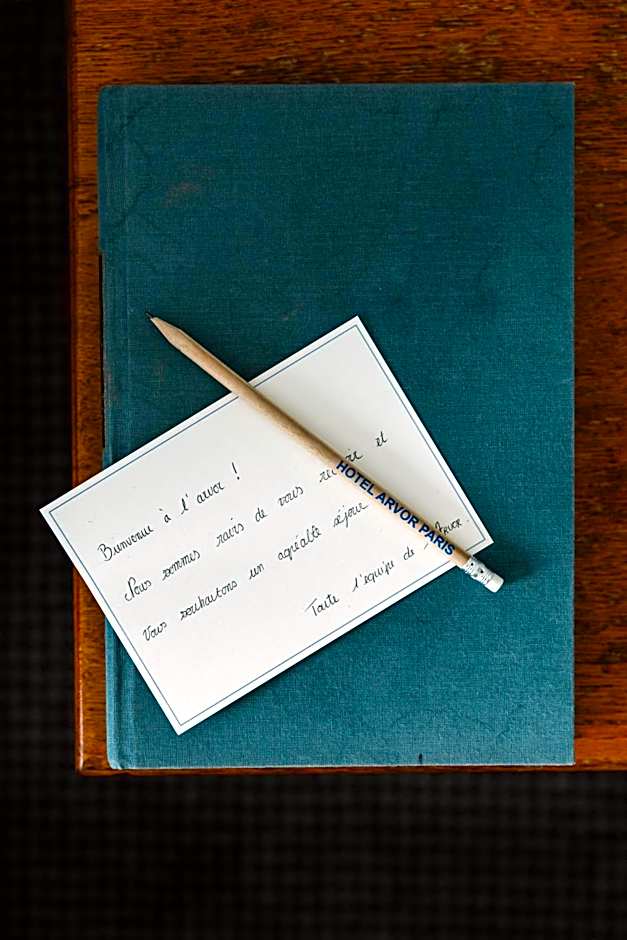 Bienvenue à l'arvor !
Nous sommes ravis de vous recevoir et
Vous souhaitons un agréable séjour
Toute l'équipe de l'Arvor.
HOTEL ARVOR PARIS